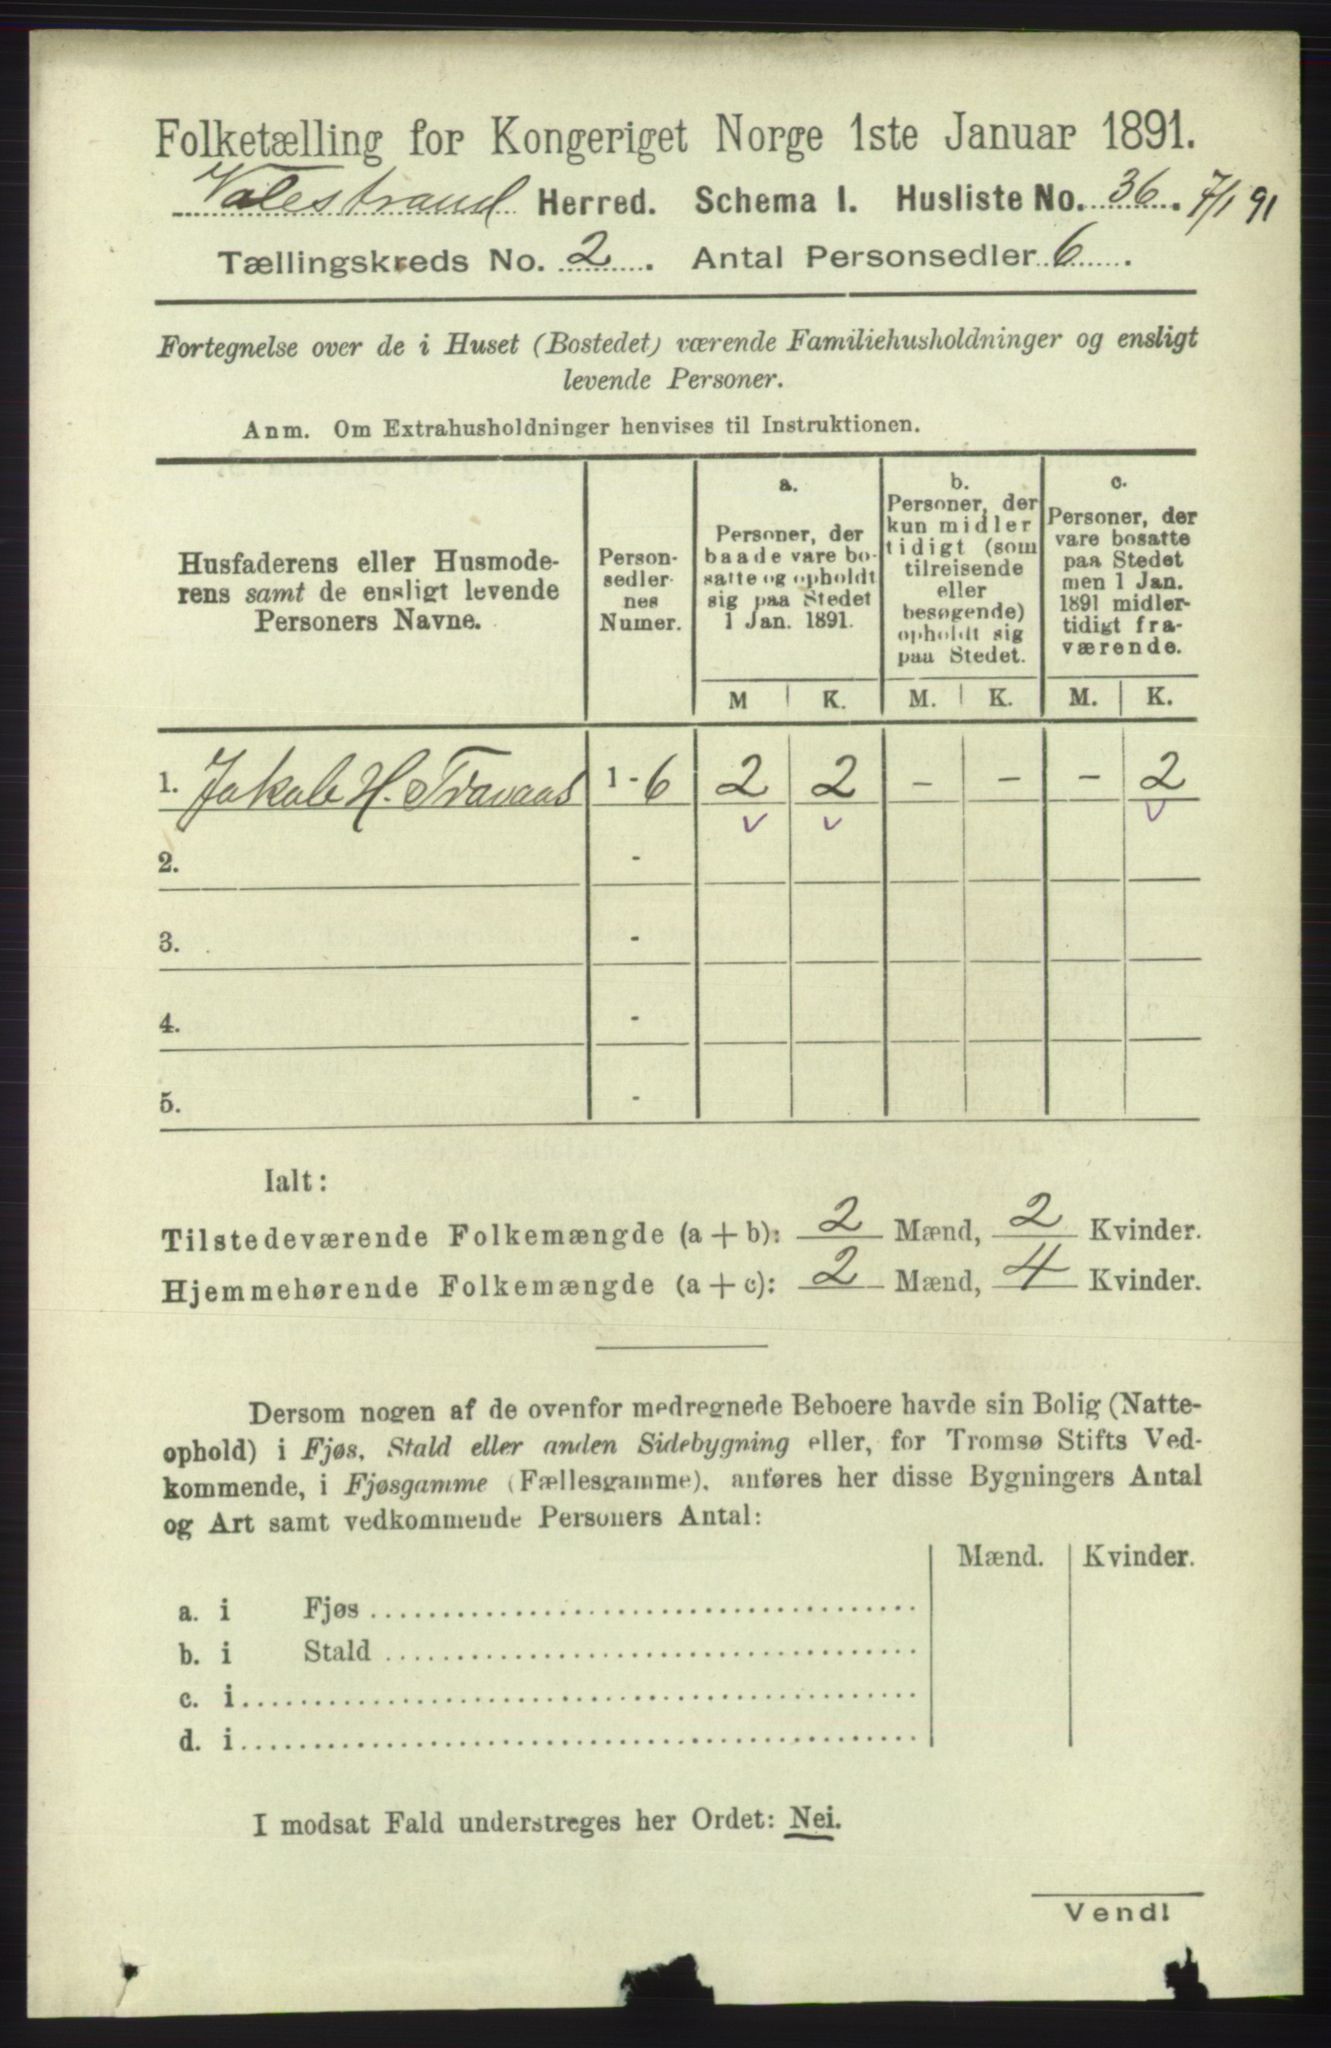 Folketælling for Kongeriget Norge 1ste Januar 1891.
Valestrand Herred. Schema I. Husliste No. 36. 7/1 91
Tællingskreds No. 2. Antal Personsedler 6.
Fortegnelse over de i Huset (Bostedet) værende Familiehusholdninger og ensligt
levende Personer.
Anm. Om Extrahusholdninger henvises til Instruktionen.
Husfaderens eller Husmode-
rens samt de ensligt levende
Personers Navne.
Person-
sedler-
nes
Numer.
a.
Personer, der
baade vare bo-
satte og opholdt
sig paa Stedet
1 Jan. 1891.
M K.
b.
Personer, der
kun midler
tidigt (som
tilreisende
eller
besøgende)
opholdt sig
paa Stedet.
M. K.
c.
Personer, der
vare bosatte
paa Stedet
men 1 Jan.
1891 midler-
tidigt fra-
værende.
M. K.
1. Jakob H. Travaas 1-6 2 2 - - - 2
v v v
2. -
3. -
4. -
5. -
Ialt:
Tilstedeværende Folkemængde (a + b): 2 Mænd, 2 Kvinder.
Hjemmehørende Folkemængde (a + c): 2 Mænd, 4 Kvinder.
Dersom nogen af de ovenfor medregnede Beboere havde sin Bolig (Natte-
ophold) i Fjøs, Stald eller anden Sidebygning eller, for Tromsø Stifts Ved-
kommende, i Fjøsgamme (Fællesgamme), anføres her disse Bygningers Antal
og Art samt vedkommende Personers Antal:
Mænd. Kvinder.
a. i Fjøs
b. i Stald
c. i
d. i
I modsat Fald understreges her Ordet: Nei.
Vend!